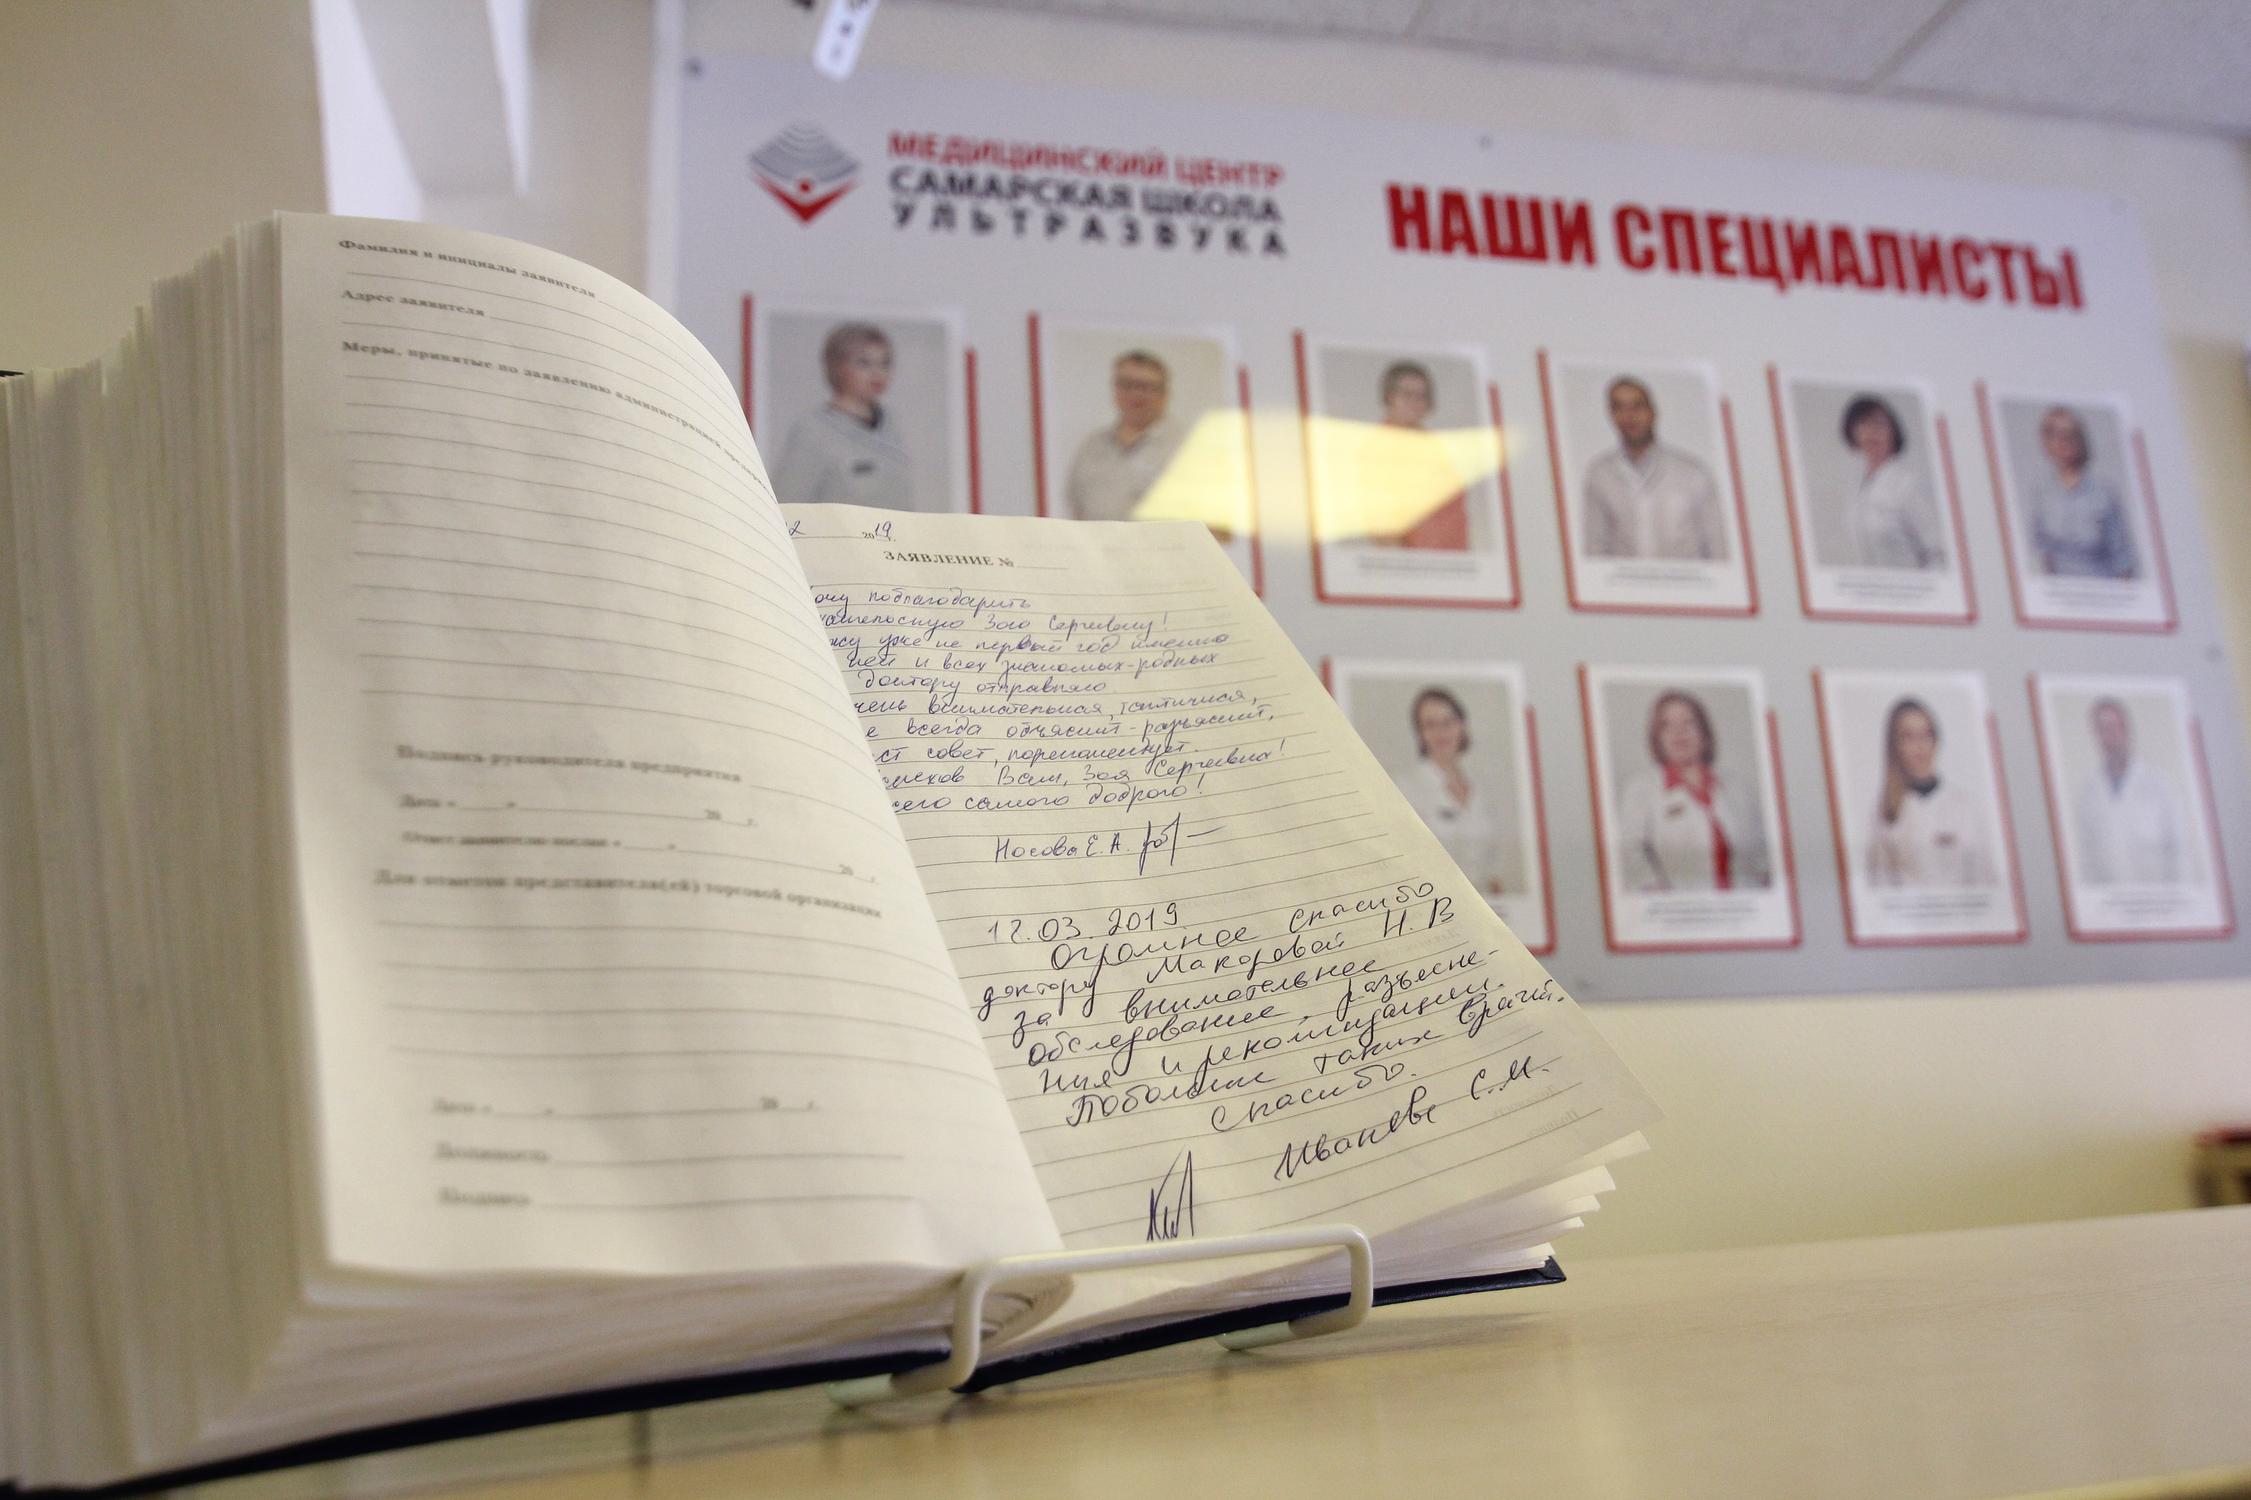 МЕДИЦИНСКИЙ ЦЕНТР
САМАРСКАЯ ШКОЛА
УЛЬТРАЗВУКА
НАШИ СПЕЦИАЛИСТЫ
Фамилия и инициалы заявителя
Адрес заявителя
Меры, принятые по заявлению администрацией
Подпись руководителя предприятия
Дата « » 20 г.
Ответ заявителю послан « » 20 г.
Для отметок представителя(ей) торговой организации
Дата « » 20 г.
Должность
Подпись
2019 г.
ЗАЯВЛЕНИЕ №
поблагодарить
Зою Сергеевну!
уже не первый год именно
и всех знакомых-родных
доктору отправляю
внимательная, тактичная,
всегда объяснит-разъяснит,
совет, порекомендует.
Вам, Зоя Сергеевна!
самого доброго!
Носова Е.А.
12.03.2019
Огромное спасибо
доктору Макаровой Н.В
за внимательное
обследование, разъясне-
ния и рекомендации.
Побольше таких врачей.
Спасибо.
Иванова С.М.